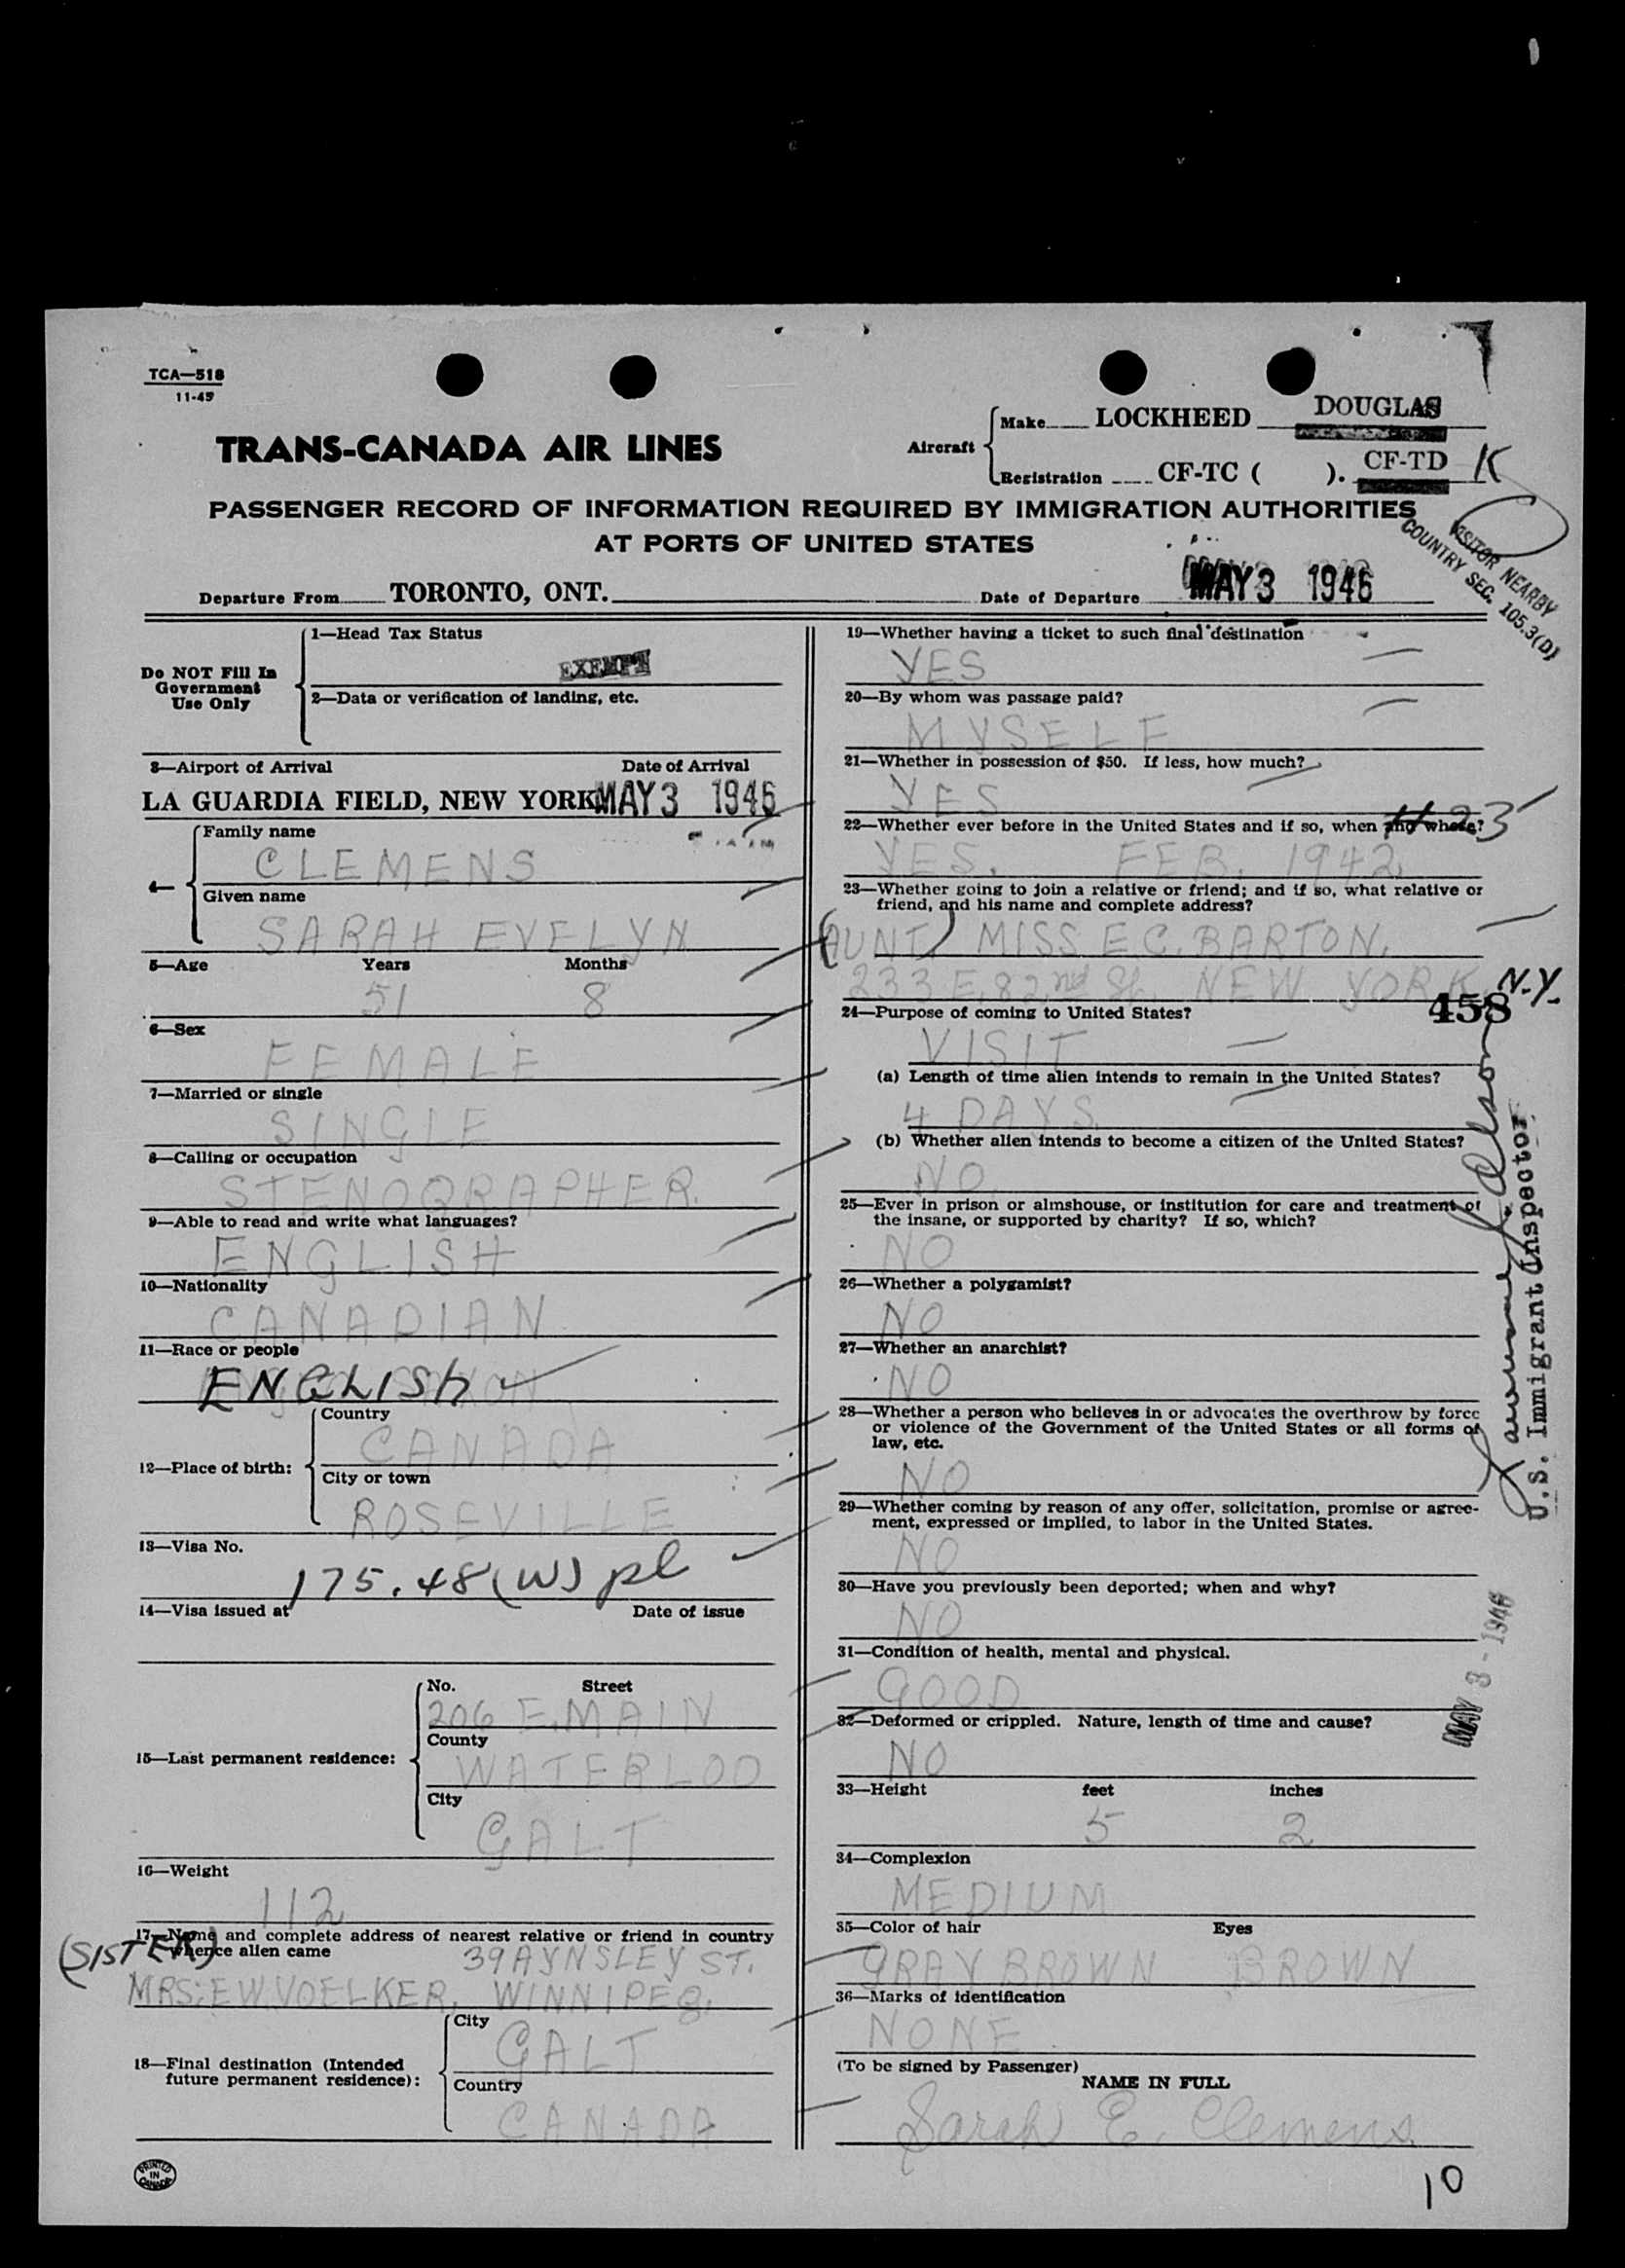 TCA—518
11-45
TRANS-CANADA AIR LINES
Aircraft
Make LOCKHEED DOUGLAS
Registration CF-TC ( ). CF-TD K
PASSENGER RECORD OF INFORMATION REQUIRED BY IMMIGRATION AUTHORITIES
AT PORTS OF UNITED STATES
VISITOR NEARBY
COUNTRY SEC. 105.3(D)
Departure From TORONTO, ONT. Date of Departure MAY 3 1946
Do NOT Fill In
Government
Use Only
1—Head Tax Status
EXEMPT
2—Data or verification of landing, etc.
3—Airport of Arrival Date of Arrival
LA GUARDIA FIELD, NEW YORK MAY 3 1946
4—
Family name
CLEMENS
Given name
SARAH EVELYN
5—Age Years Months
51 8
6—Sex
FEMALE
7—Married or single
SINGLE
8—Calling or occupation
STENOGRAPHER.
9—Able to read and write what languages?
ENGLISH
10—Nationality
CANADIAN
11—Race or people
ENGLISH
12—Place of birth:
Country
CANADA
City or town
ROSEVILLE
13—Visa No.
175.48 (W) pl
14—Visa issued at Date of issue
15—Last permanent residence:
No. Street
206 E. MAIN
County
WATERLOO
City
GALT
16—Weight
112
17—Name and complete address of nearest relative or friend in country
whence alien came
(SISTER) 39 AYNSLEY ST.
MRS. E W. VOELKER, WINNIPEG.
18—Final destination (Intended
future permanent residence):
City
GALT
Country
CANADA
PRINTED
IN
CANADA
19—Whether having a ticket to such final destination
YES
20—By whom was passage paid?
MYSELF
21—Whether in possession of $50. If less, how much?
YES
22—Whether ever before in the United States and if so, when and where? 23
YES. FEB. 1942
23—Whether going to join a relative or friend; and if so, what relative or
friend, and his name and complete address?
(AUNT) MISS E.C. BARTON.
233 E. 82nd St. NEW YORK, N.Y.
458
24—Purpose of coming to United States?
VISIT
(a) Length of time alien intends to remain in the United States?
4 DAYS
(b) Whether alien intends to become a citizen of the United States?
NO
25—Ever in prison or almshouse, or institution for care and treatment of
the insane, or supported by charity? If so, which?
NO
26—Whether a polygamist?
NO
27—Whether an anarchist?
NO
28—Whether a person who believes in or advocates the overthrow by force
or violence of the Government of the United States or all forms of
law, etc.
NO
29—Whether coming by reason of any offer, solicitation, promise or agree-
ment, expressed or implied, to labor in the United States.
NO
30—Have you previously been deported; when and why?
NO
31—Condition of health, mental and physical.
GOOD
32—Deformed or crippled. Nature, length of time and cause?
NO
33—Height feet inches
5 2
34—Complexion
MEDIUM
35—Color of hair Eyes
GRAY BROWN BROWN
36—Marks of identification
NONE
(To be signed by Passenger)
NAME IN FULL
Sarah E. Clemens
U.S. Immigrant Inspector
MAY 3 - 1946
10